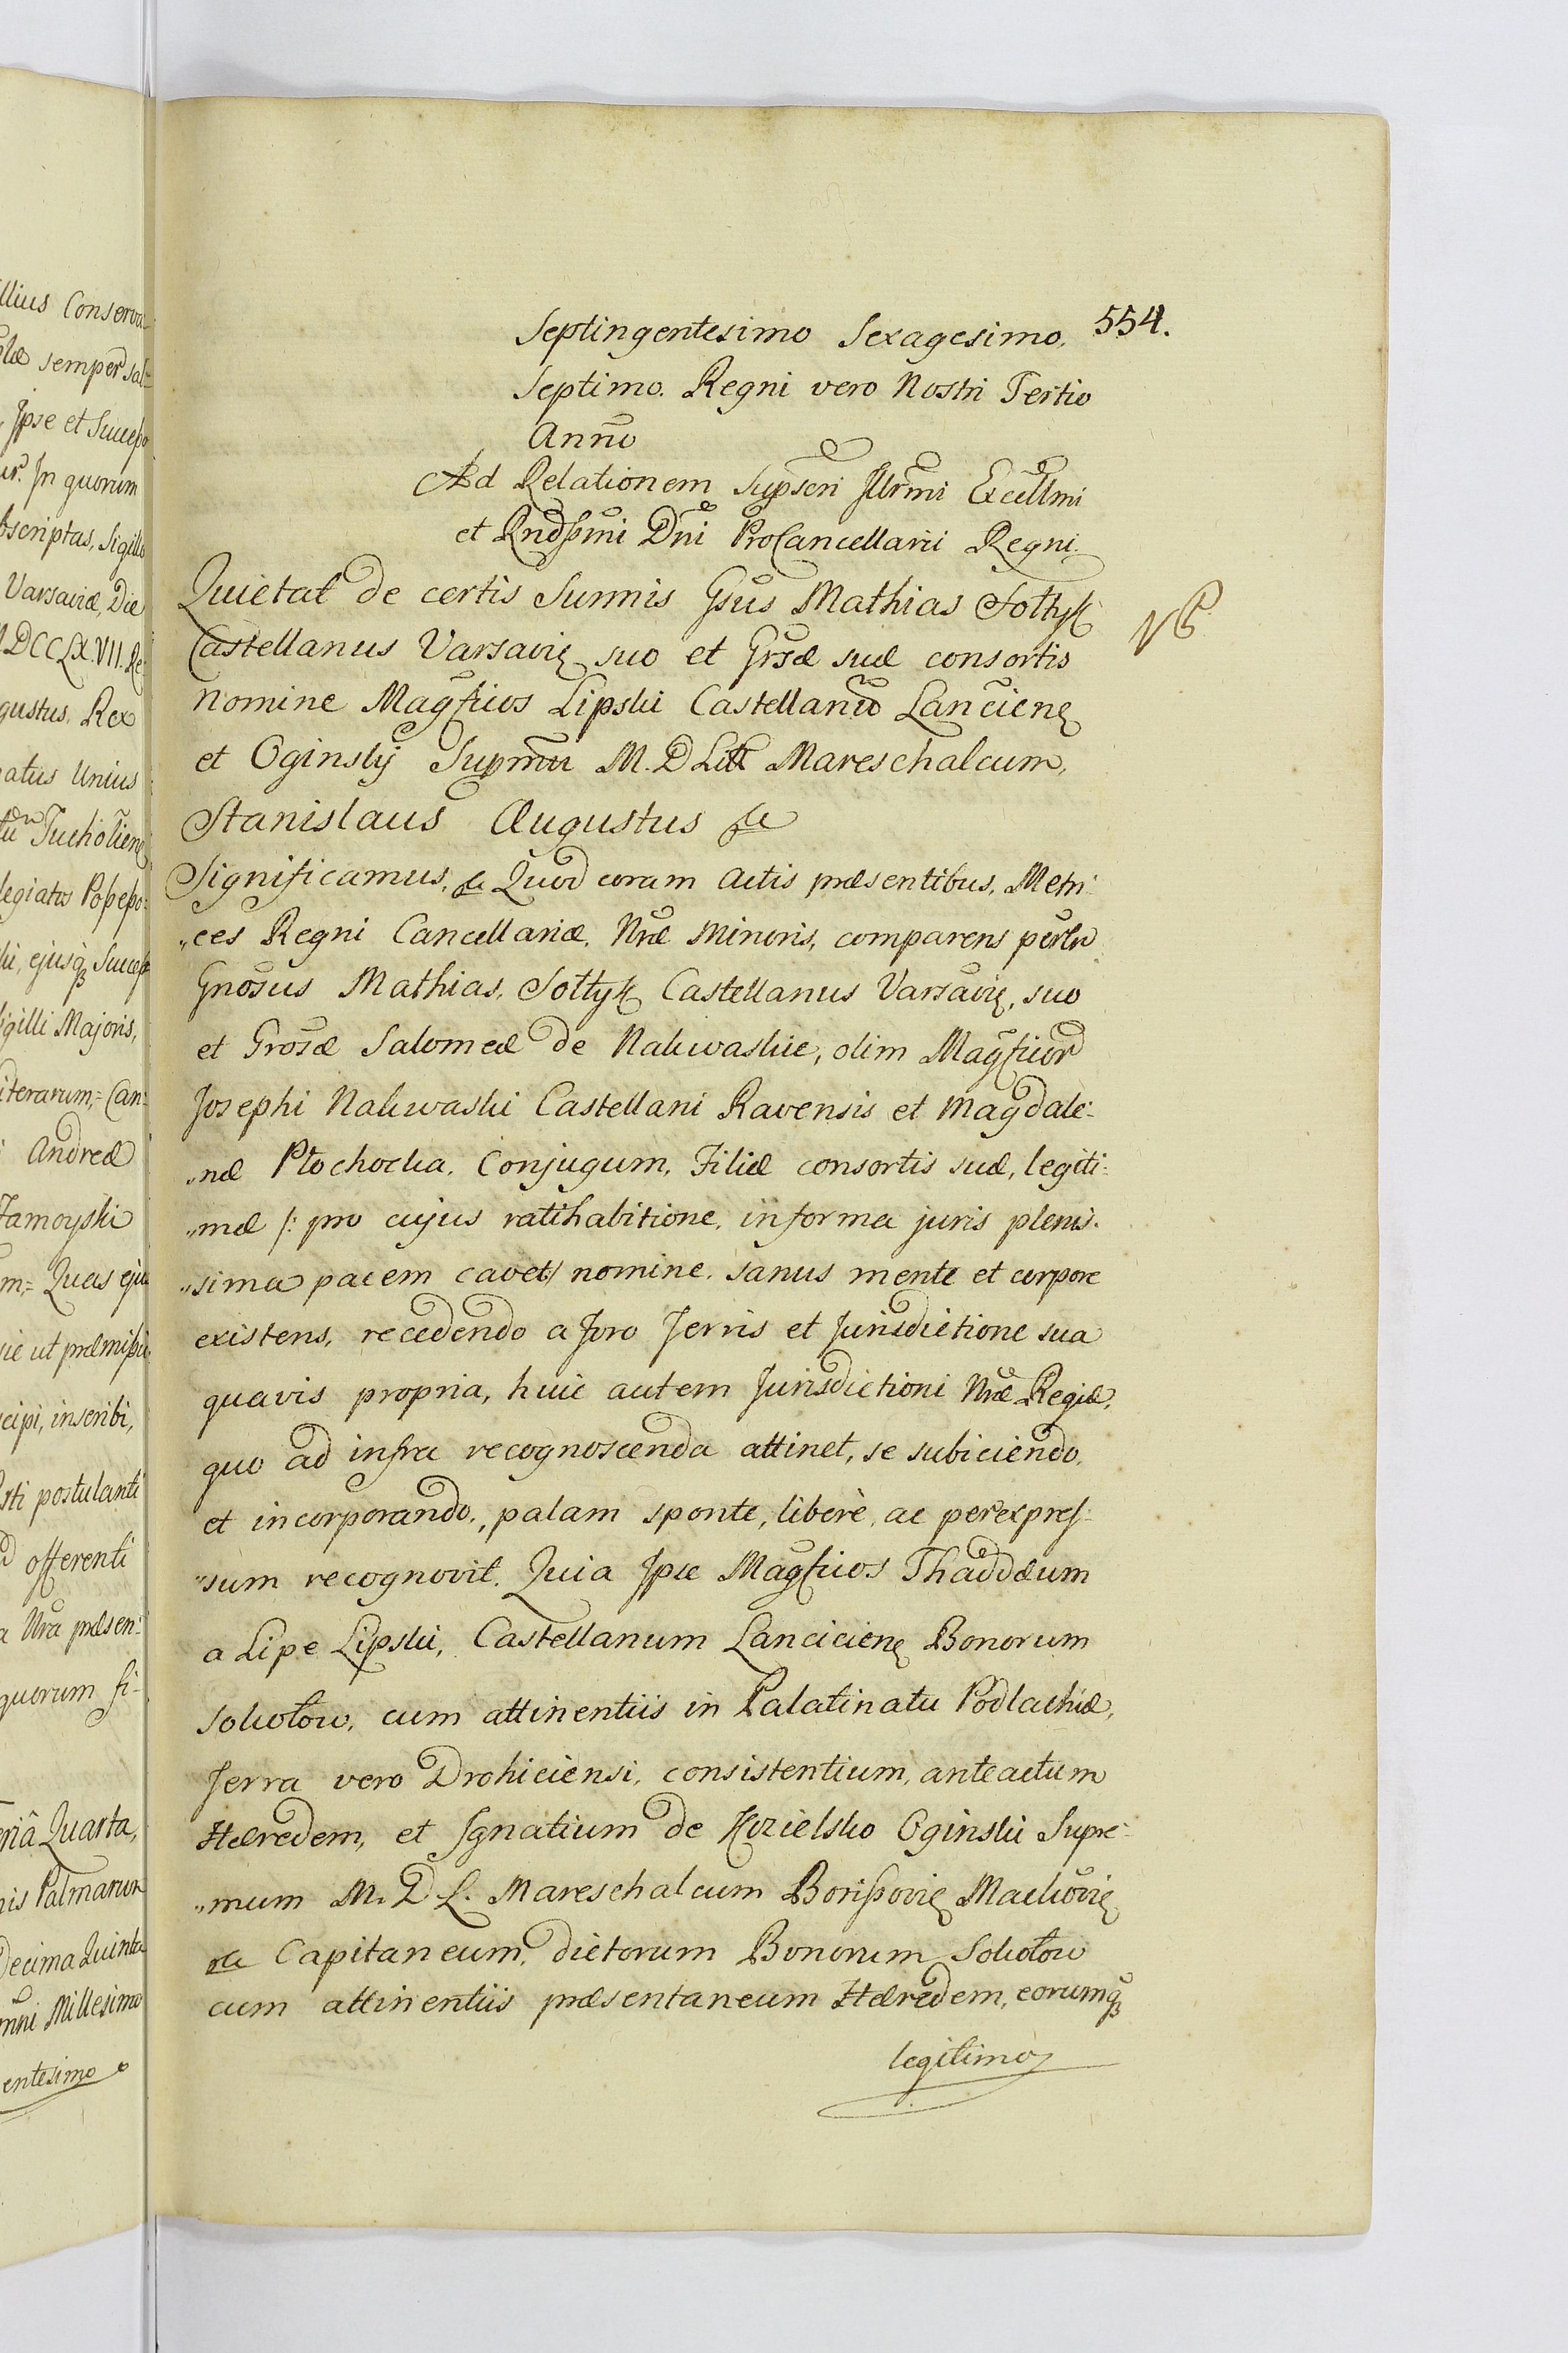 llius Conserva-
blæ semper sal=
Ipse et Successo
ur. In quorum
bscriptas, Sigillo
Varsaviæ, Die
M.DCCLX.VII. Re:
gustus, Rex
natus Unius
Tucholien̄
legiatos Possesso:
ki, ejusq̃ Success
Sigilli Majoris,
iterarum,= Can:
i Andreæ
Zamoyski
m,= Quas eju
sic ut præmissū
scipi, inscribi,
rti postulanti
d offerenti
a Nrã præsen:
quorum fi-
eriâ Quarta,
nis Palmarum
Decima Quinta
mñi Millesimo
entesimo
554.
Septingentesimo Sexagesimo.
Septimo. Regni vero Nostri Tertio
Anno
Ad Relationem Supscri Illrmi Excellmi
et Rndssmi Dni ProCancellarii Regni.
Quietat de certis Summis Gsus Mathias Sołtyk
Castellanus Varsavię suo et Grsæ suæ consortis
nomine Magficos Lipski Castellanū Lancicieną
et Oginsky Supmū M. D Litt Mareschalcum,
NB
Stanislaus Augustus &c
Significamus, &c Quod coram Actis præsentibus, Metri:
„ces Regni Cancellariæ, Nræ Minoris, comparens perlr
Gnosus Mathias, Sołtyk Castellanus Varsavię, suo
et Grosæ Salomeæ de Nakwaskie, olim Magficor
Josephi Nakwaski Castellani Ravensis et Magdale:
„næ Płochocka, Conjugum, Filiæ consortis suæ, legiti:
„mæ /: pro cujus ratihabitione, in forma juris plenis:
„sima pacem cavet:/ nomine, sanus mente et corpore
existens, recedendo a foro Terris et Jurisdictione sua
quavis propria, huic autem Jurisdictioni Nræ Regiæ,
quo ad infra recognoscenda attinet, se subiciendo,
et incorporando,, palam sponte, liberè, ac per expres:
„sum recognovit. Quia Ipse Magficos Thaddæum
a Lipe Lipski, Castellanum Lancicienę Bonorum
Sokołow, cum attinentiis in Palatinatu Podlachiæ,
Terra vero Drohiciensi, consistentium, anteactum
Hæredem, et Ignatium de Kozielsko Oginski Supre:
„mum M. D L. Mareschalcum Borissovię Mackovię
&c Capitaneum, dictorum Bonorum Sokołow
cum attinentiis præsentaneum Hæredem, eorumq̃
legitimos